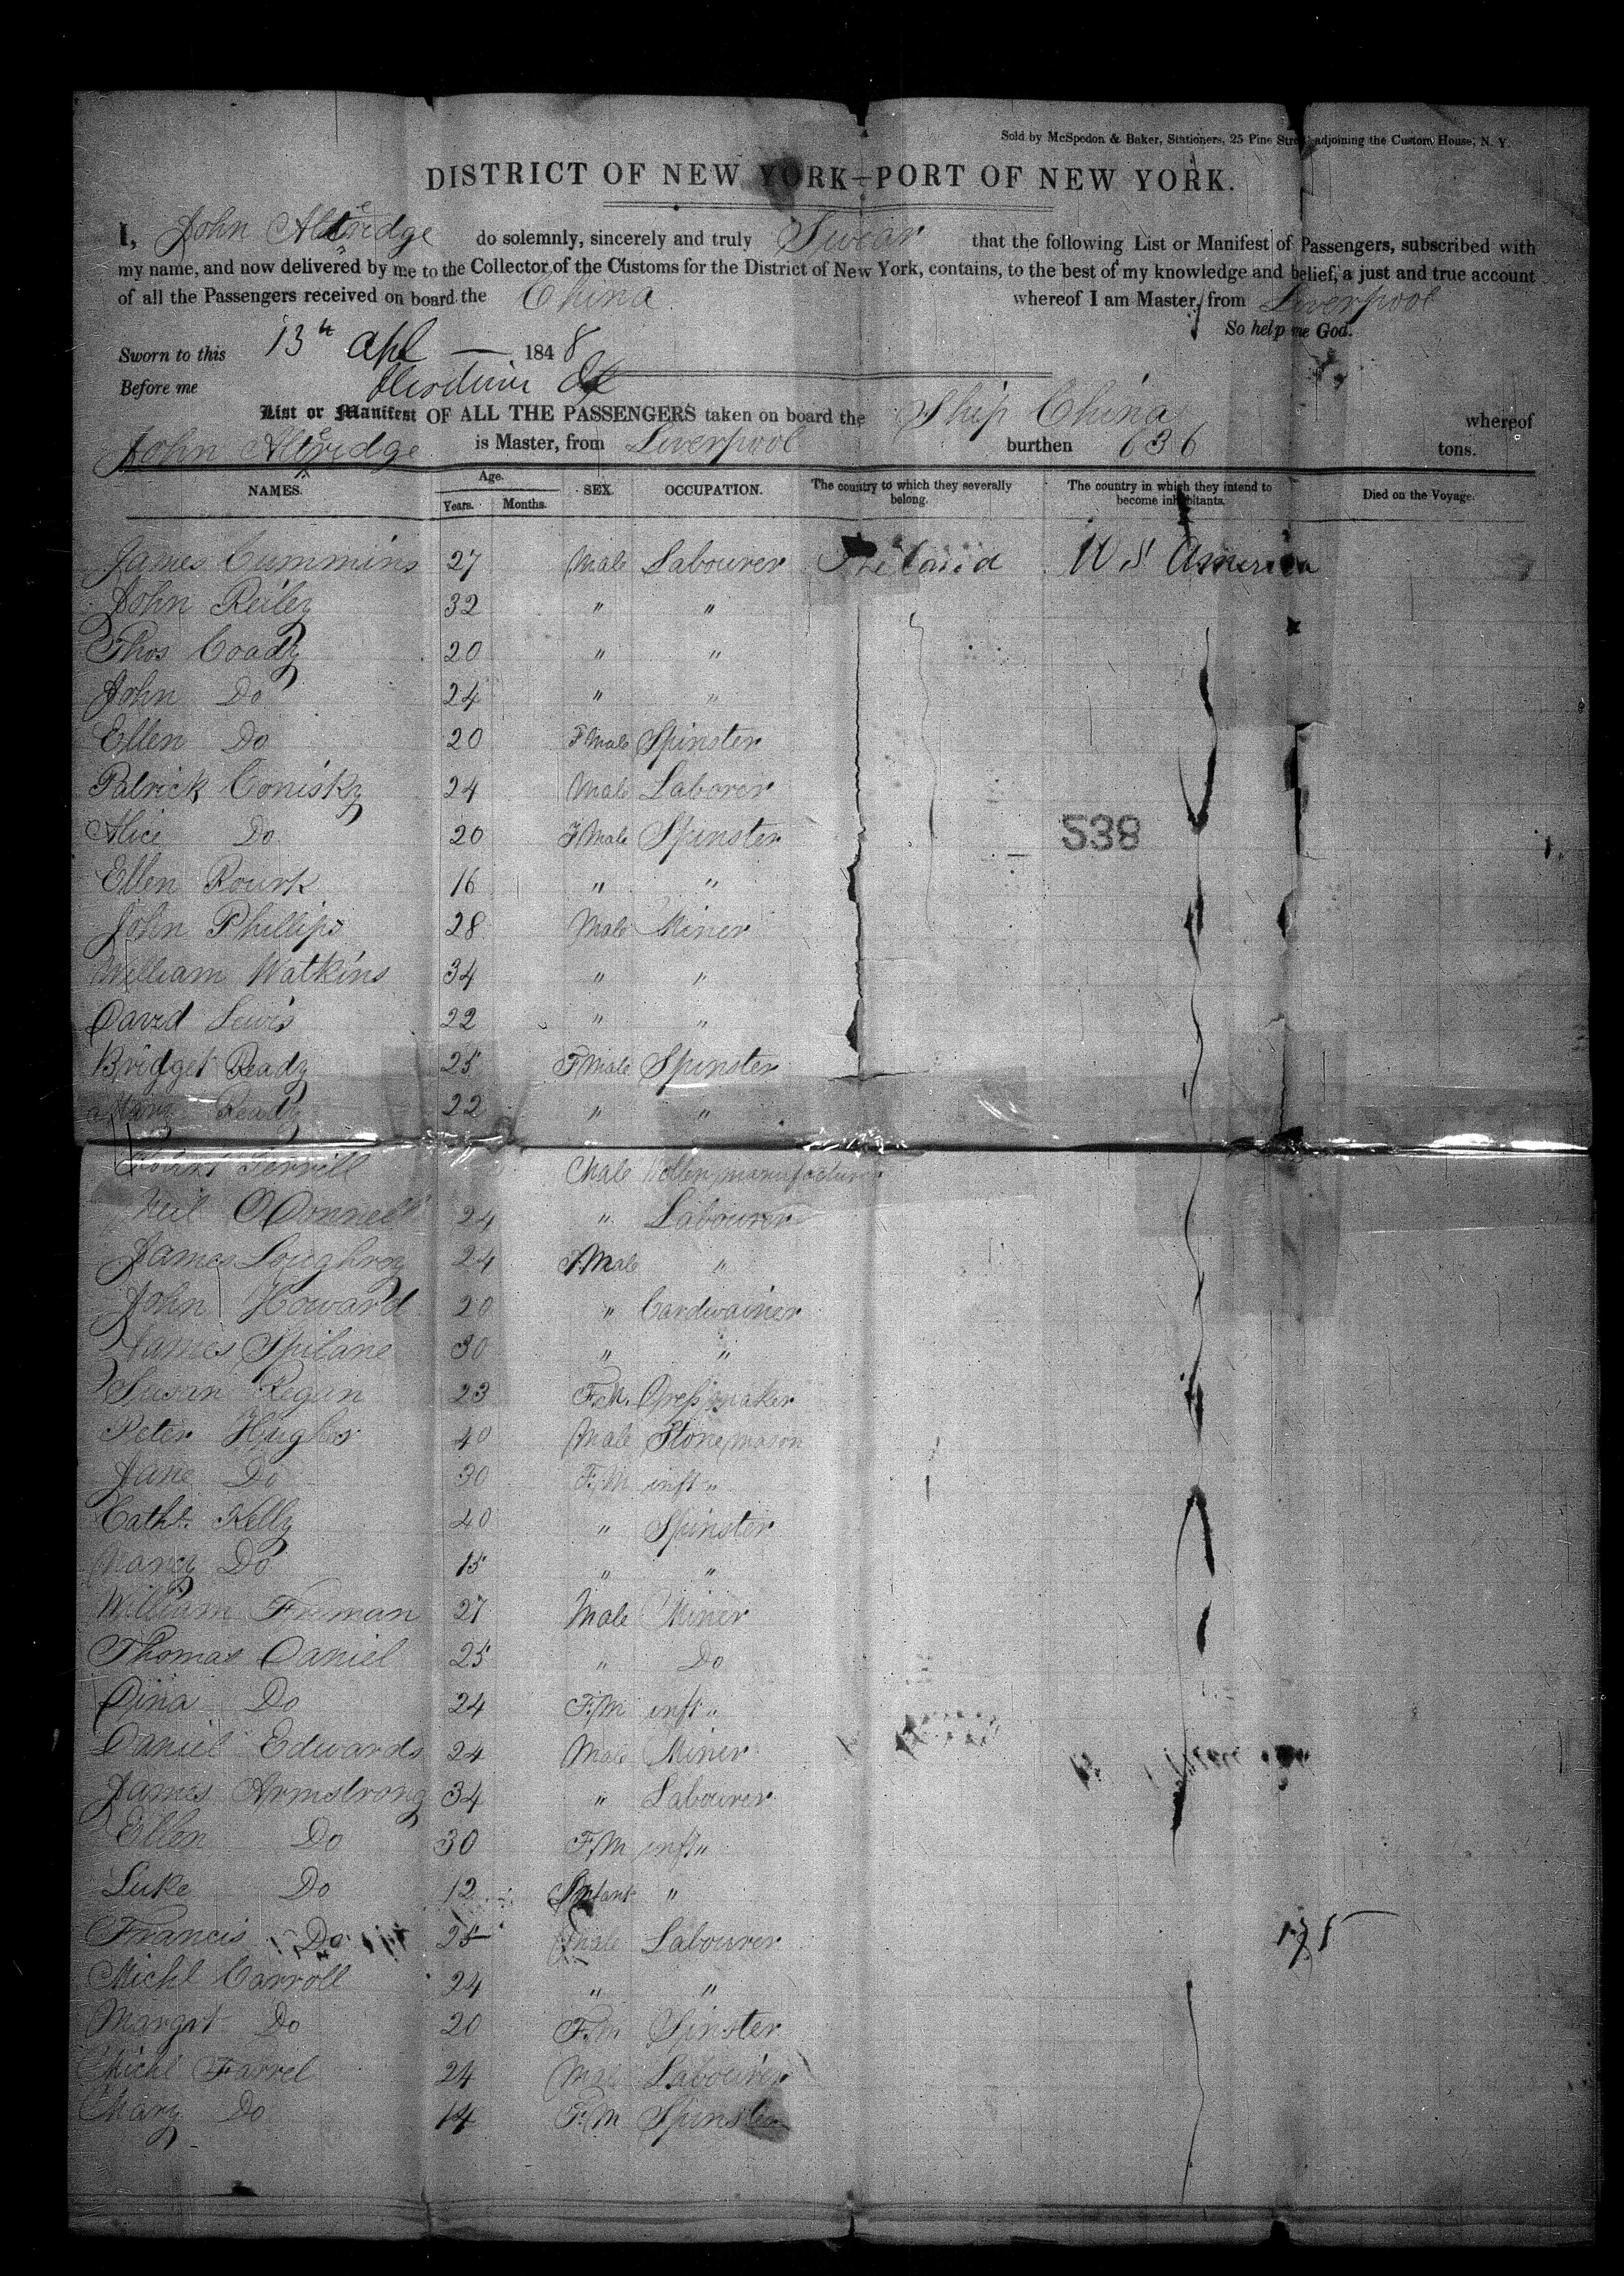 Sold by McSpedon & Baker, Stationers, 25 Pine Street adjoining the Custom House, N. Y.
DISTRICT OF NEW YORK—PORT OF NEW YORK.
I, John Aldridge do solemnly, sincerely and truly Swear that the following List or Manifest of Passengers, subscribed with
my name, and now delivered by me to the Collector of the Customs for the District of New York, contains, to the best of my knowledge and belief, a just and true account
of all the Passengers received on board the China whereof I am Master, from Liverpool
So help me God.
Sworn to this 13th Apl — 1848
Before me
List or Manifest OF ALL THE PASSENGERS taken on board the Ship China whereof
John Aldridge is Master, from Liverpool burthen 636 tons.
NAMES. Age. Years. Months. SEX. OCCUPATION. The country to which they severally belong. The country in which they intend to become inhabitants. Died on the Voyage.
James Cummins 27 Male Labourer Ireland U S America
John Reiley 32 " "
Thos Coady 20 " "
John Do 24 " "
Ellen Do 20 F Male Spinster
Patrick Conisky 24 Male Laborer
Alice Do 20 F Male Spinster
538
Ellen Rourk 16 " "
John Phillips 28 Male Miner
William Watkins 34 " "
David Lewis 22 " "
Bridget Ready 25 F Male Spinster
Mary Ready 22 " "
Male Wollen manufacturer
Neil O Donnell 24 " Labourer
James Loughrey 24 Male "
John Howard 20 " Cardwainer
James Spilane 30 " "
Susan Regan 23 F.M. Dressmaker
Peter Hughes 40 Male Stone mason
Jane Do 30 F.M "
Cath. Kelly 40 " Spinster
Nancy Do 15 " "
William Freman 27 Male Miner
Thomas Daniel 25 " Do
Dina Do 24 F.M "
Daniel Edwards 24 Male Miner
James Armstrong 34 " Labourer
Ellen Do 30 F.M "
Luke Do 12 Infant "
Francis Do 25 Male Labourer 175
Michl Carroll 24 " "
Margrt Do 20 F.M Spinster
Michl Farrel 24 Male Labourer
Mary Do 14 F.M Spinster